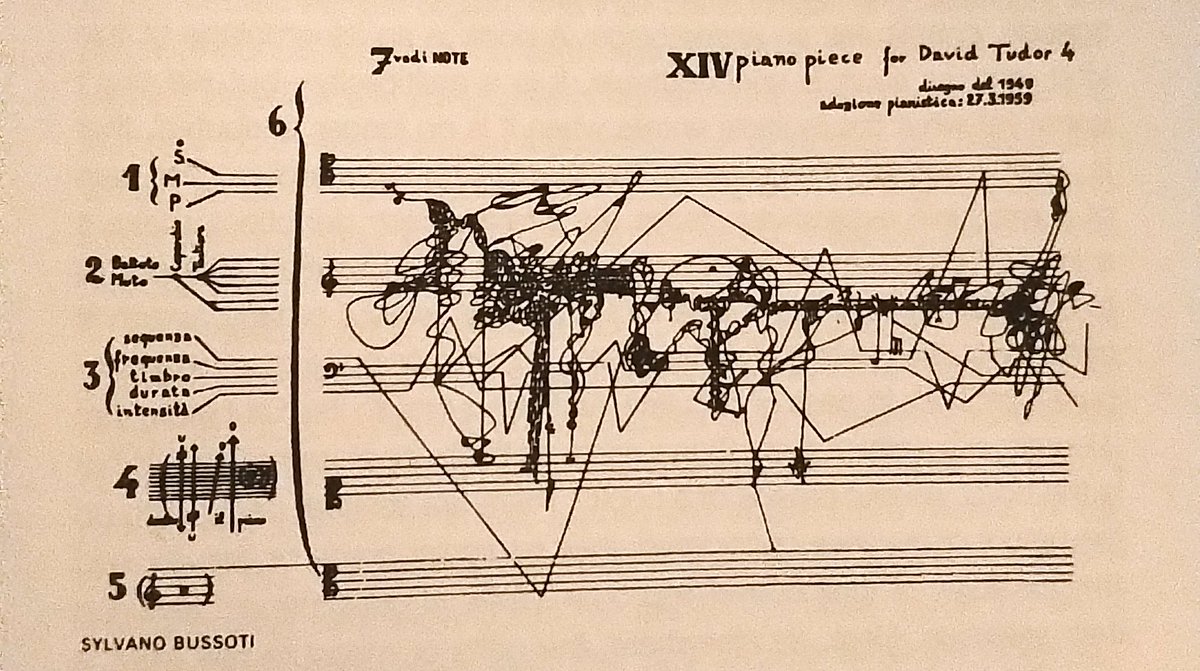 7 vedi NOTE
XIV piano piece for David Tudor 4
disegno del 1949
adozione pianistica: 27.3.1959
6
1
S
M
P
2
Battuto
Muto
3
sequenza
frequenza
timbro
durata
intensità
4
il
5
SYLVANO BUSSOTI